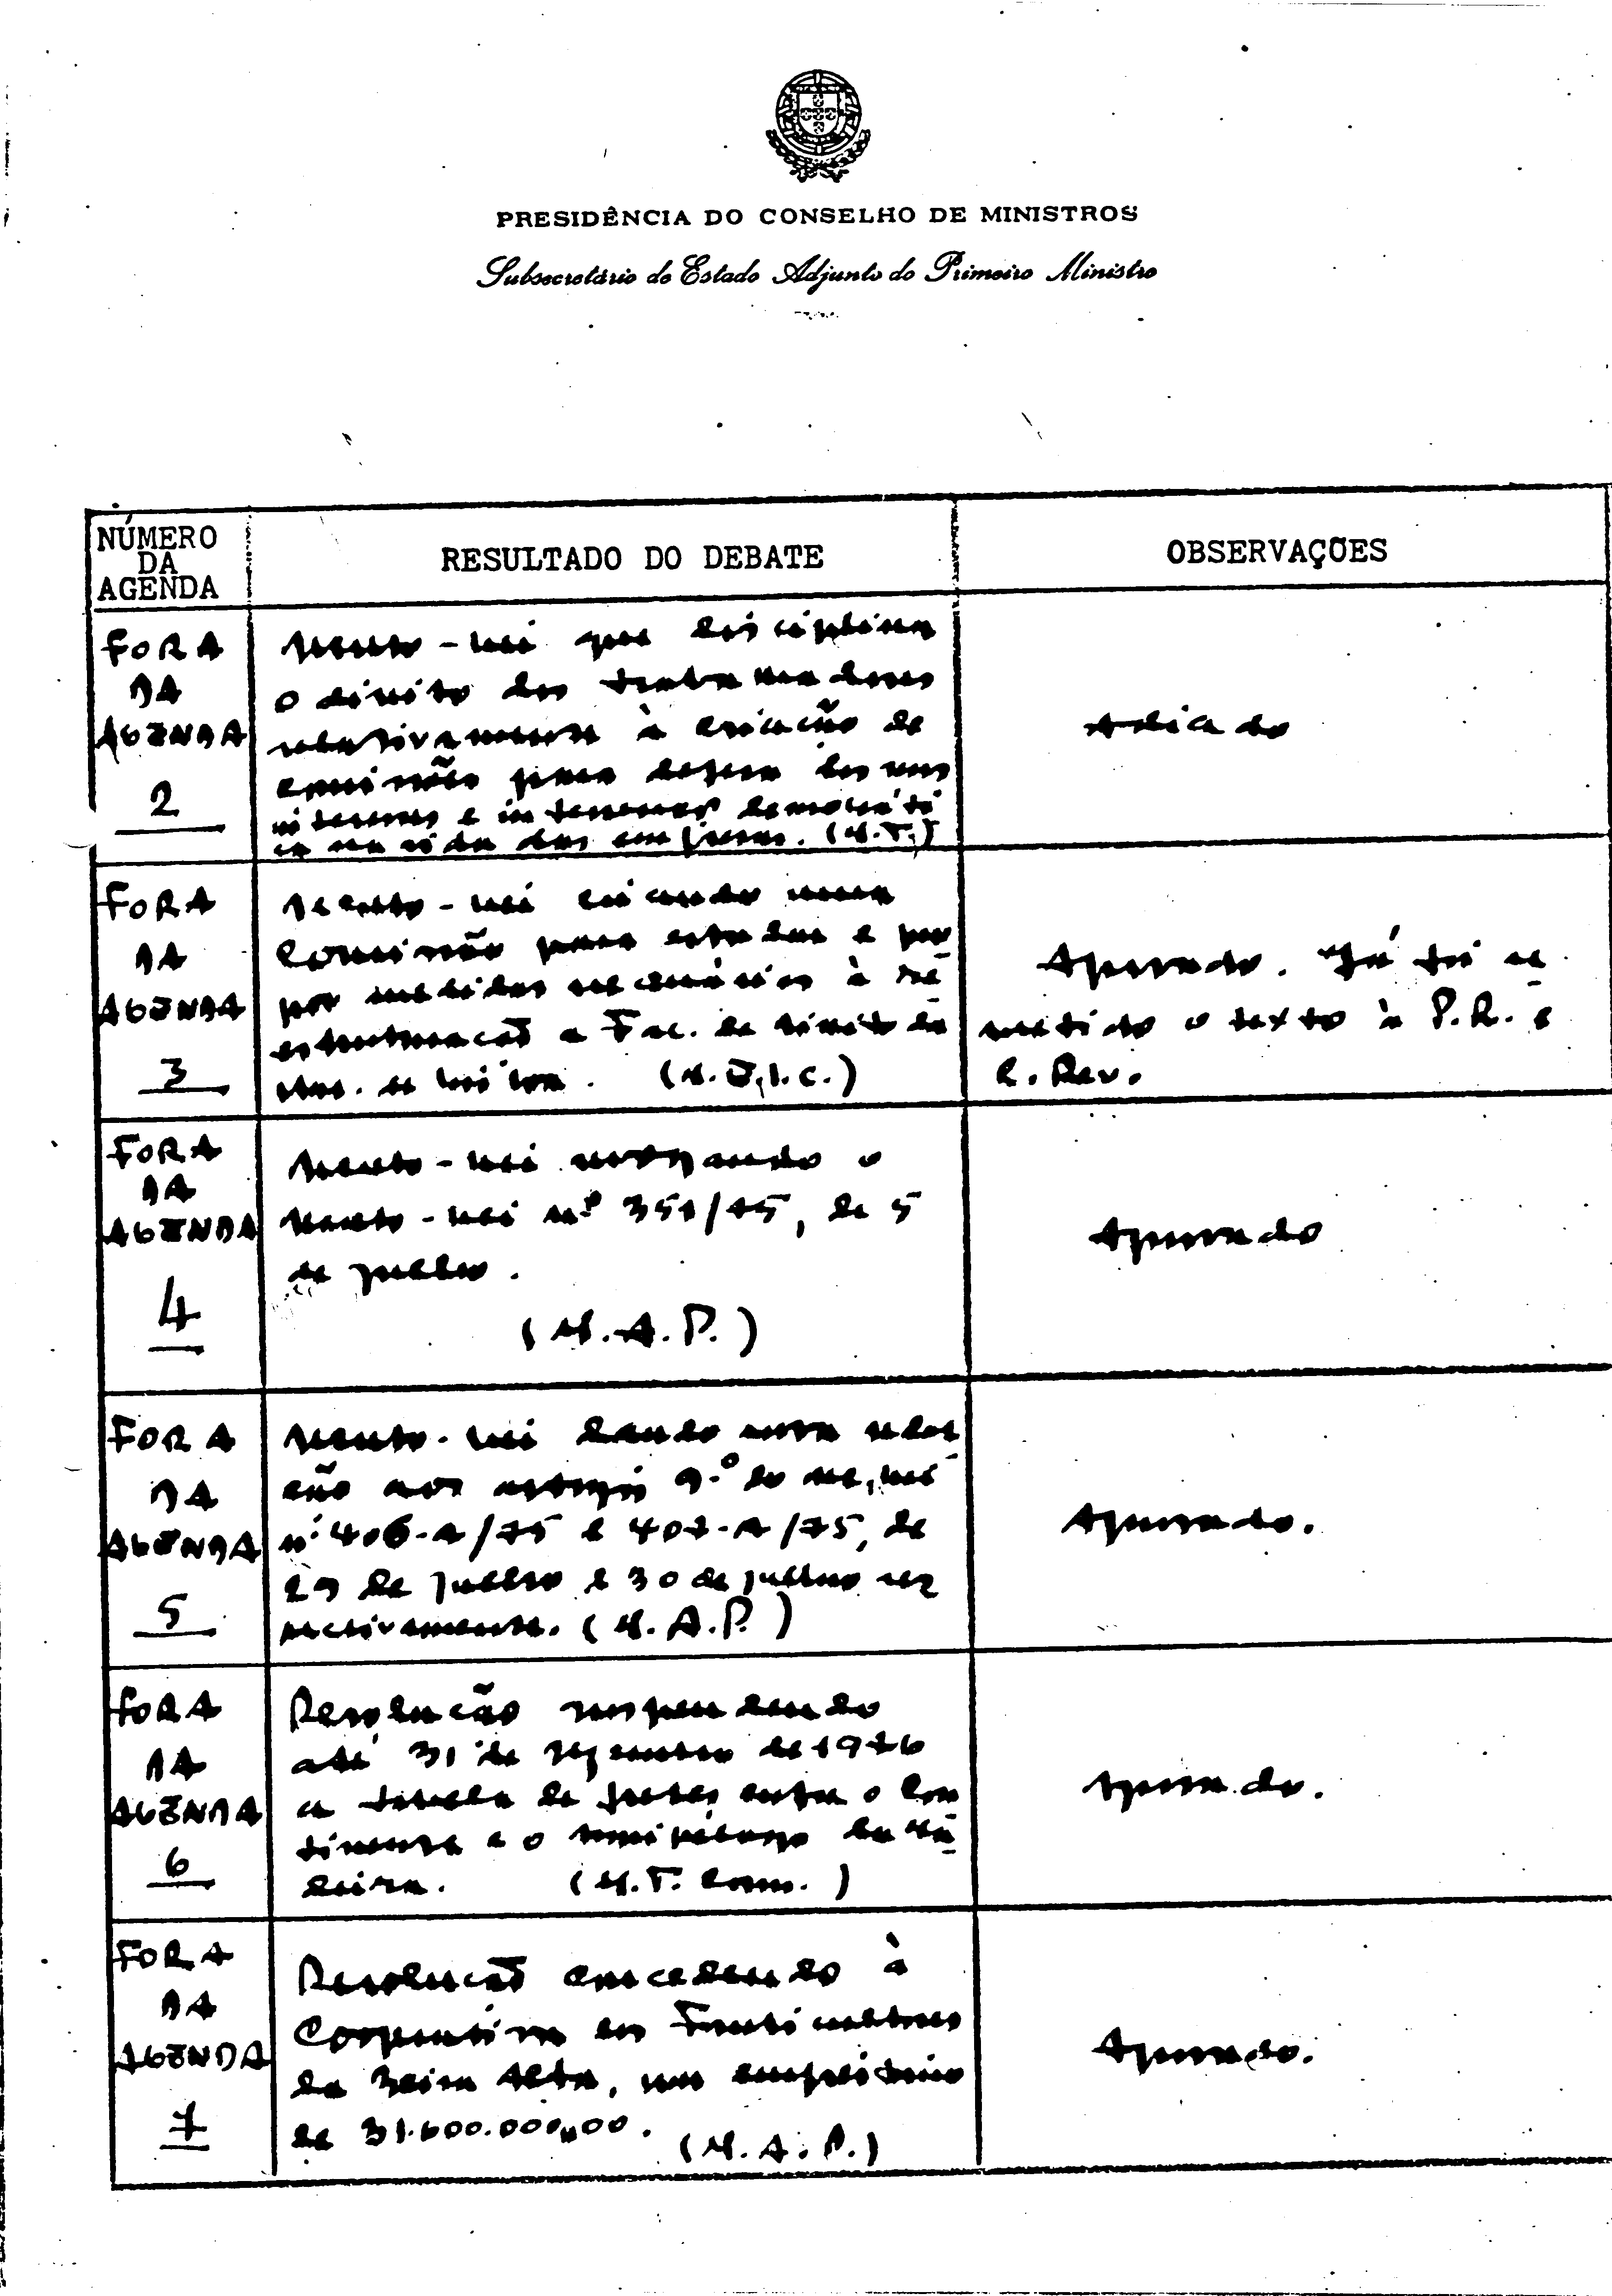 PRESIDÊNCIA DO CONSELHO DE MINISTROS
Subsecretário de Estado Adjunto do Primeiro Ministro
NÚMERO
DA
AGENDA
RESULTADO DO DEBATE
OBSERVAÇÕES
FORA
DA
AGENDA
2
Decreto-Lei que disciplina
o direito dos trabalhadores
relativamente à criação de
comissões para defesa dos seus
interesses e intervenção democráti
ca na vida das empresas. (M.T.)
Adiado
FORA
DA
AGENDA
3
Decreto-Lei criando uma
Comissão para estudar e pro
por medidas necessárias à re
estruturação a Fac. de Direito da
Univ. de Lisboa. (M.E.I.C.)
Aprovado. Já foi re
metido o texto à P.R. e
C. Rev.
FORA
DA
AGENDA
4
Decreto-Lei revogando o
Decreto-Lei nº 351/75, de 5
de Julho.
(M.A.P.)
Aprovado
FORA
DA
AGENDA
5
Decreto-Lei dando nova redac
ção aos artigos 9.º do Dec. Lei
nº 406-A/75 e 407-A/75, de
29 de Julho e 30 de Julho res
pectivamente. (M.A.P.)
Aprovado.
FORA
DA
AGENDA
6
Resolução suspendendo
até 31 de Dezembro de 1976
a tabela de fretes entre o Con
tinente e o Arquipélago da Ma
deira. (M.T. Com.)
Aprovado.
FORA
DA
AGENDA
7
Resolução concedendo à
Cooperativa dos Fruticultores
da Beira Alta, um empréstimo
de 31.600.000,00.
(M.A.P.)
Aprovado.